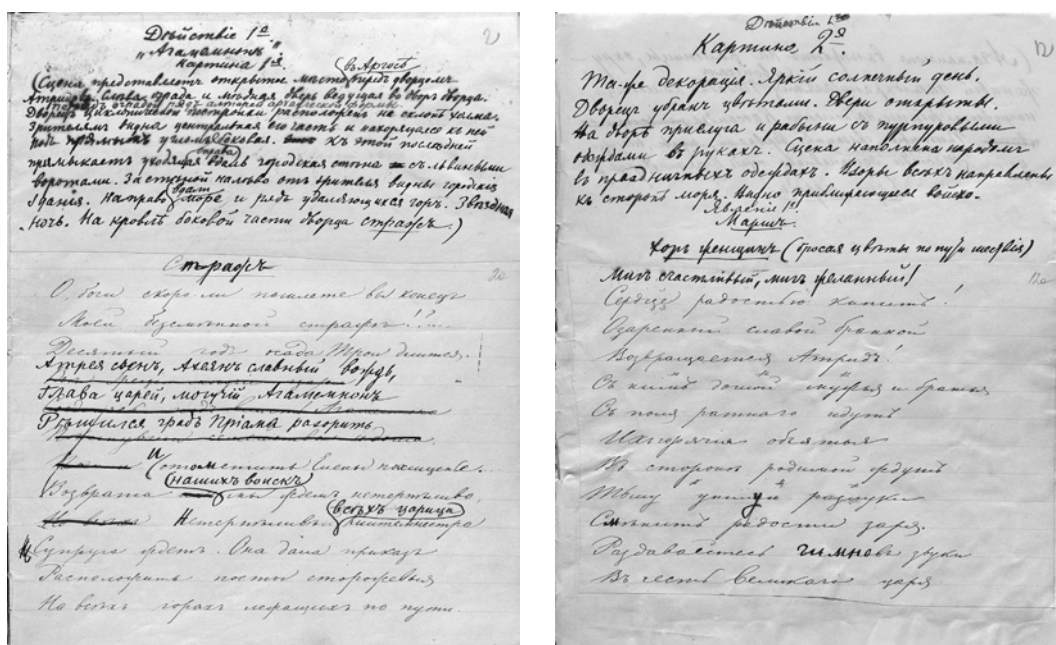 Дѣйствіе 1е
„Агамемнонъ".
Картина 1я.
2
въ Аргосѣ
(Сцена представляетъ открытое мѣсто передъ дворцомъ
Атридовъ. Слѣва ограда и мѣдная дверь ведущая во дворъ дворца.
Передъ оградой рядъ алтарей архаической формы.
Дворецъ циклопической постройки расположенъ на склонѣ холма.
Зрителямъ видна центральная его часть и находящаяся къ ней
подъ прямымъ угломъ боковая. Къ этой последней
примыкаетъ уходящая вдаль городская стѣна съ львиными
воротами. За стѣной налѣво отъ зрителя видны городскія
зданія. Направо вдали море и рядъ удаляющихся горъ. Звѣздная
ночь. На кровлѣ боковой части дворца стражъ.)
Стражъ
О, боги скоро-ли пошлете вы конецъ
Моей безсмѣнной стражѣ!?...
Десятый годъ осада Трои длится.
Атрея сынъ, Ахеянъ славный вождь,
Глава царей, могучій Агамемнонъ
Рѣшился градъ Пріама разорить
И отомстить Елены похищенье...
нашихъ войскъ
Возврата мы ждемъ нетерпѣливо,
всѣхъ царица
Нетерпѣливѣй Клитемнестра
Супруга ждетъ. Она дала приказъ
Расположить посты сторожевыя
На всѣхъ горахъ лежащихъ по пути.
Дѣйствіе 1ое
Картина 2я.
12
Та-же декорація. Яркій солнечный день.
Дворецъ убранъ цвѣтами. Двери открыты.
На дворѣ прислуга и рабыни съ пурпуровыми
одеждами въ рукахъ. Сцена наполнена народомъ
въ праздничныхъ одеждахъ. Взоры всѣхъ направлены
къ сторонѣ моря. Видно приближающееся войско.
Явленіе 1е.
Маршъ.
Хоръ женщинъ (бросая цвѣты по пути шествія)
Мигъ счастливый, мигъ желанный!
Сердце радостью кипитъ!
Озаренный славой бранной
Возвращается Атридъ!
Съ нимъ домой мужья и братья
Съ поля ратнаго идутъ
Ихъ горячія объятья
Въ сторонѣ родимой ждутъ
Тьму унылую разлуки
Смѣнитъ радости заря.
Раздавайтесь гимновъ звуки
Въ честь великаго царя